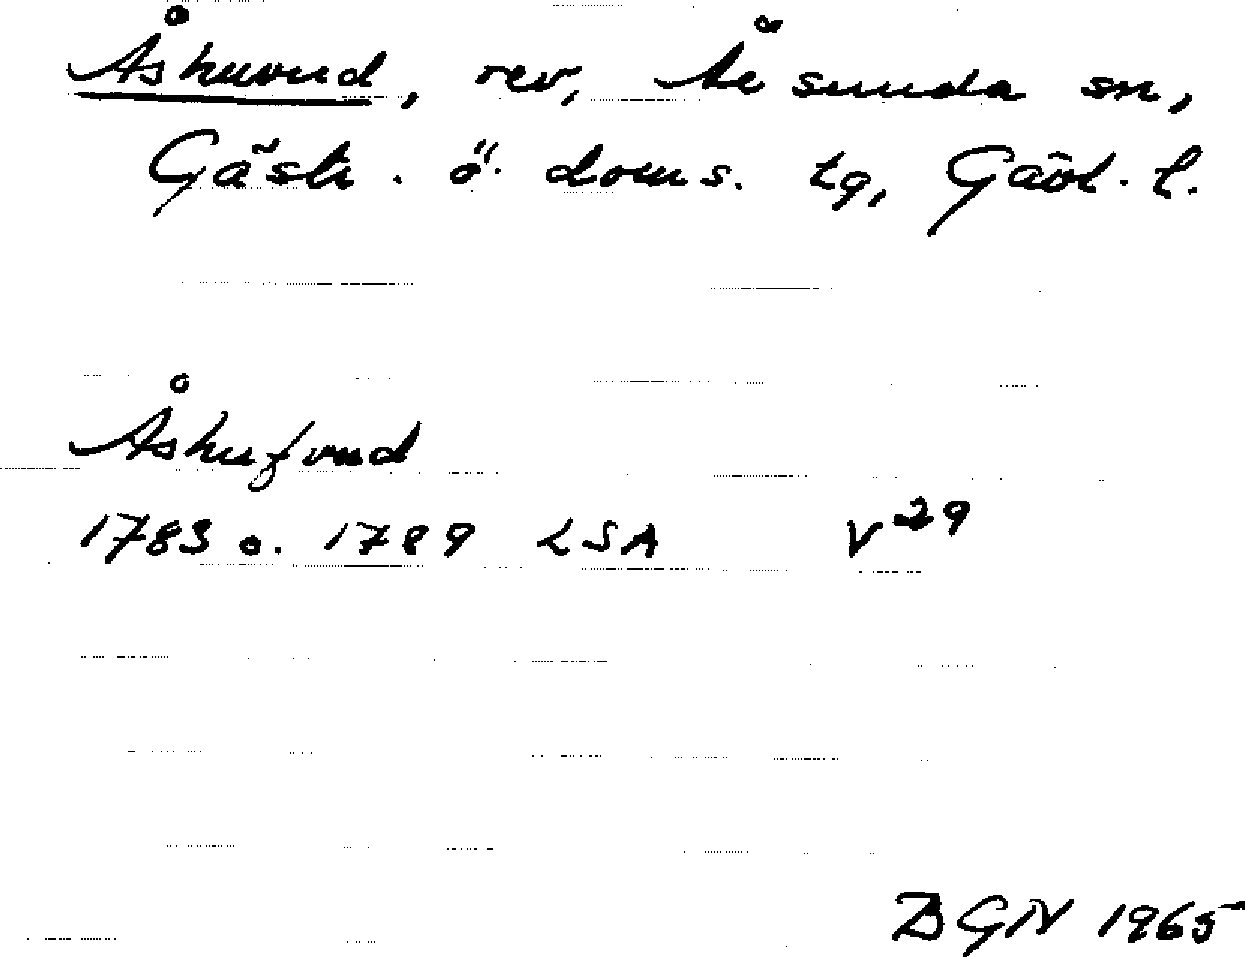 Åshuvud, rev, Årsunda sn,
Gästr. ö. doms. tg, Gävl. l.
Åshufvud
1783 o. 1789 LSA V29
BGN 1965